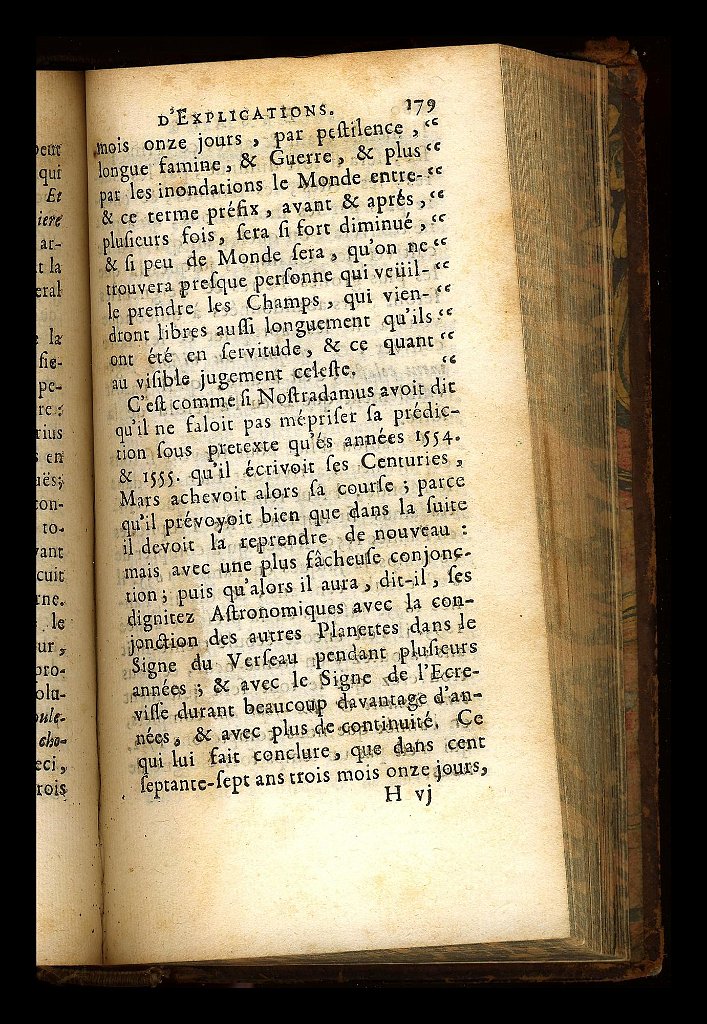 pent
qui
Et
iere
ar-
t la
eral
la
fie-
pe-
re :
rius
s en
uës;
con-
to-
vant
cuit
rne.
le
ur,
pro-
olu-
oule-
cho-
eci,
rois
D'EXPLICATIONS. 179
mois onze jours, par peſtilence, “
longue famine, & Guerre, & plus “
par les inondations le Monde entre- “
& ce terme préfix, avant & aprés, “
pluſieurs fois, ſera ſi fort diminué, “
& ſi peu de Monde ſera, qu'on ne “
trouvera preſque perſonne qui veüil- “
le prendre les Champs, qui vien- “
dront libres auſſi longuement qu'ils “
ont été en ſervitude, & ce quant “
au viſible jugement celeſte. “
C'eſt comme ſi Noſtradamus avoit dit
qu'il ne faloit pas mépriſer ſa prédic-
tion ſous pretexte qu'és années 1554.
& 1555. qu'il écrivoit ſes Centuries,
Mars achevoit alors ſa courſe ; parce
qu'il prévoyoit bien que dans la ſuite
il devoit la reprendre de nouveau :
mais avec une plus fâcheuſe conjonc-
tion ; puis qu'alors il aura, dit-il, ſes
dignitez Aſtronomiques avec la con-
jonction des autres Planettes dans le
Signe du Verſeau pendant pluſieurs
années ; & avec le Signe de l'Ecre-
viſſe durant beaucoup davantage d'an-
nées, & avec plus de continuité. Ce
qui lui fait conclure, que dans cent
ſeptante-ſept ans trois mois onze jours,
H vj